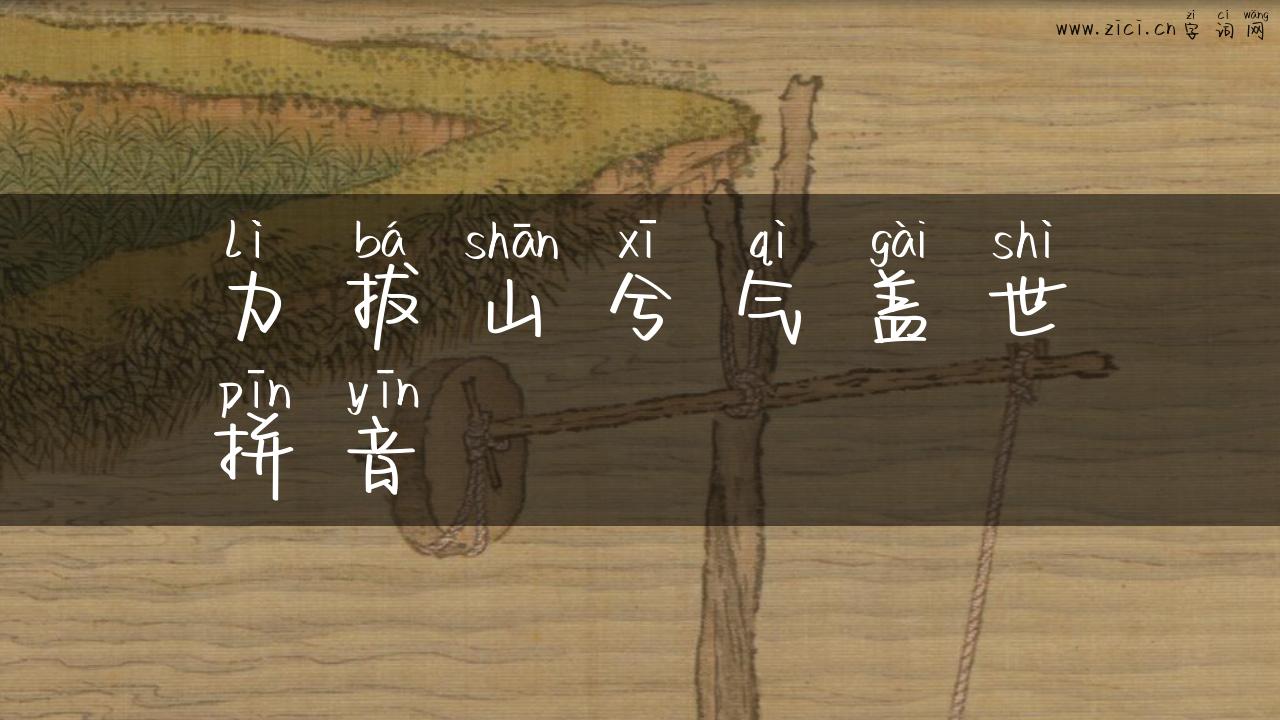 zì cí wǎng
www.zici.cn 字词网
lì bá shān xī qì gài shì
力拔山兮气盖世
pīn yīn
拼音